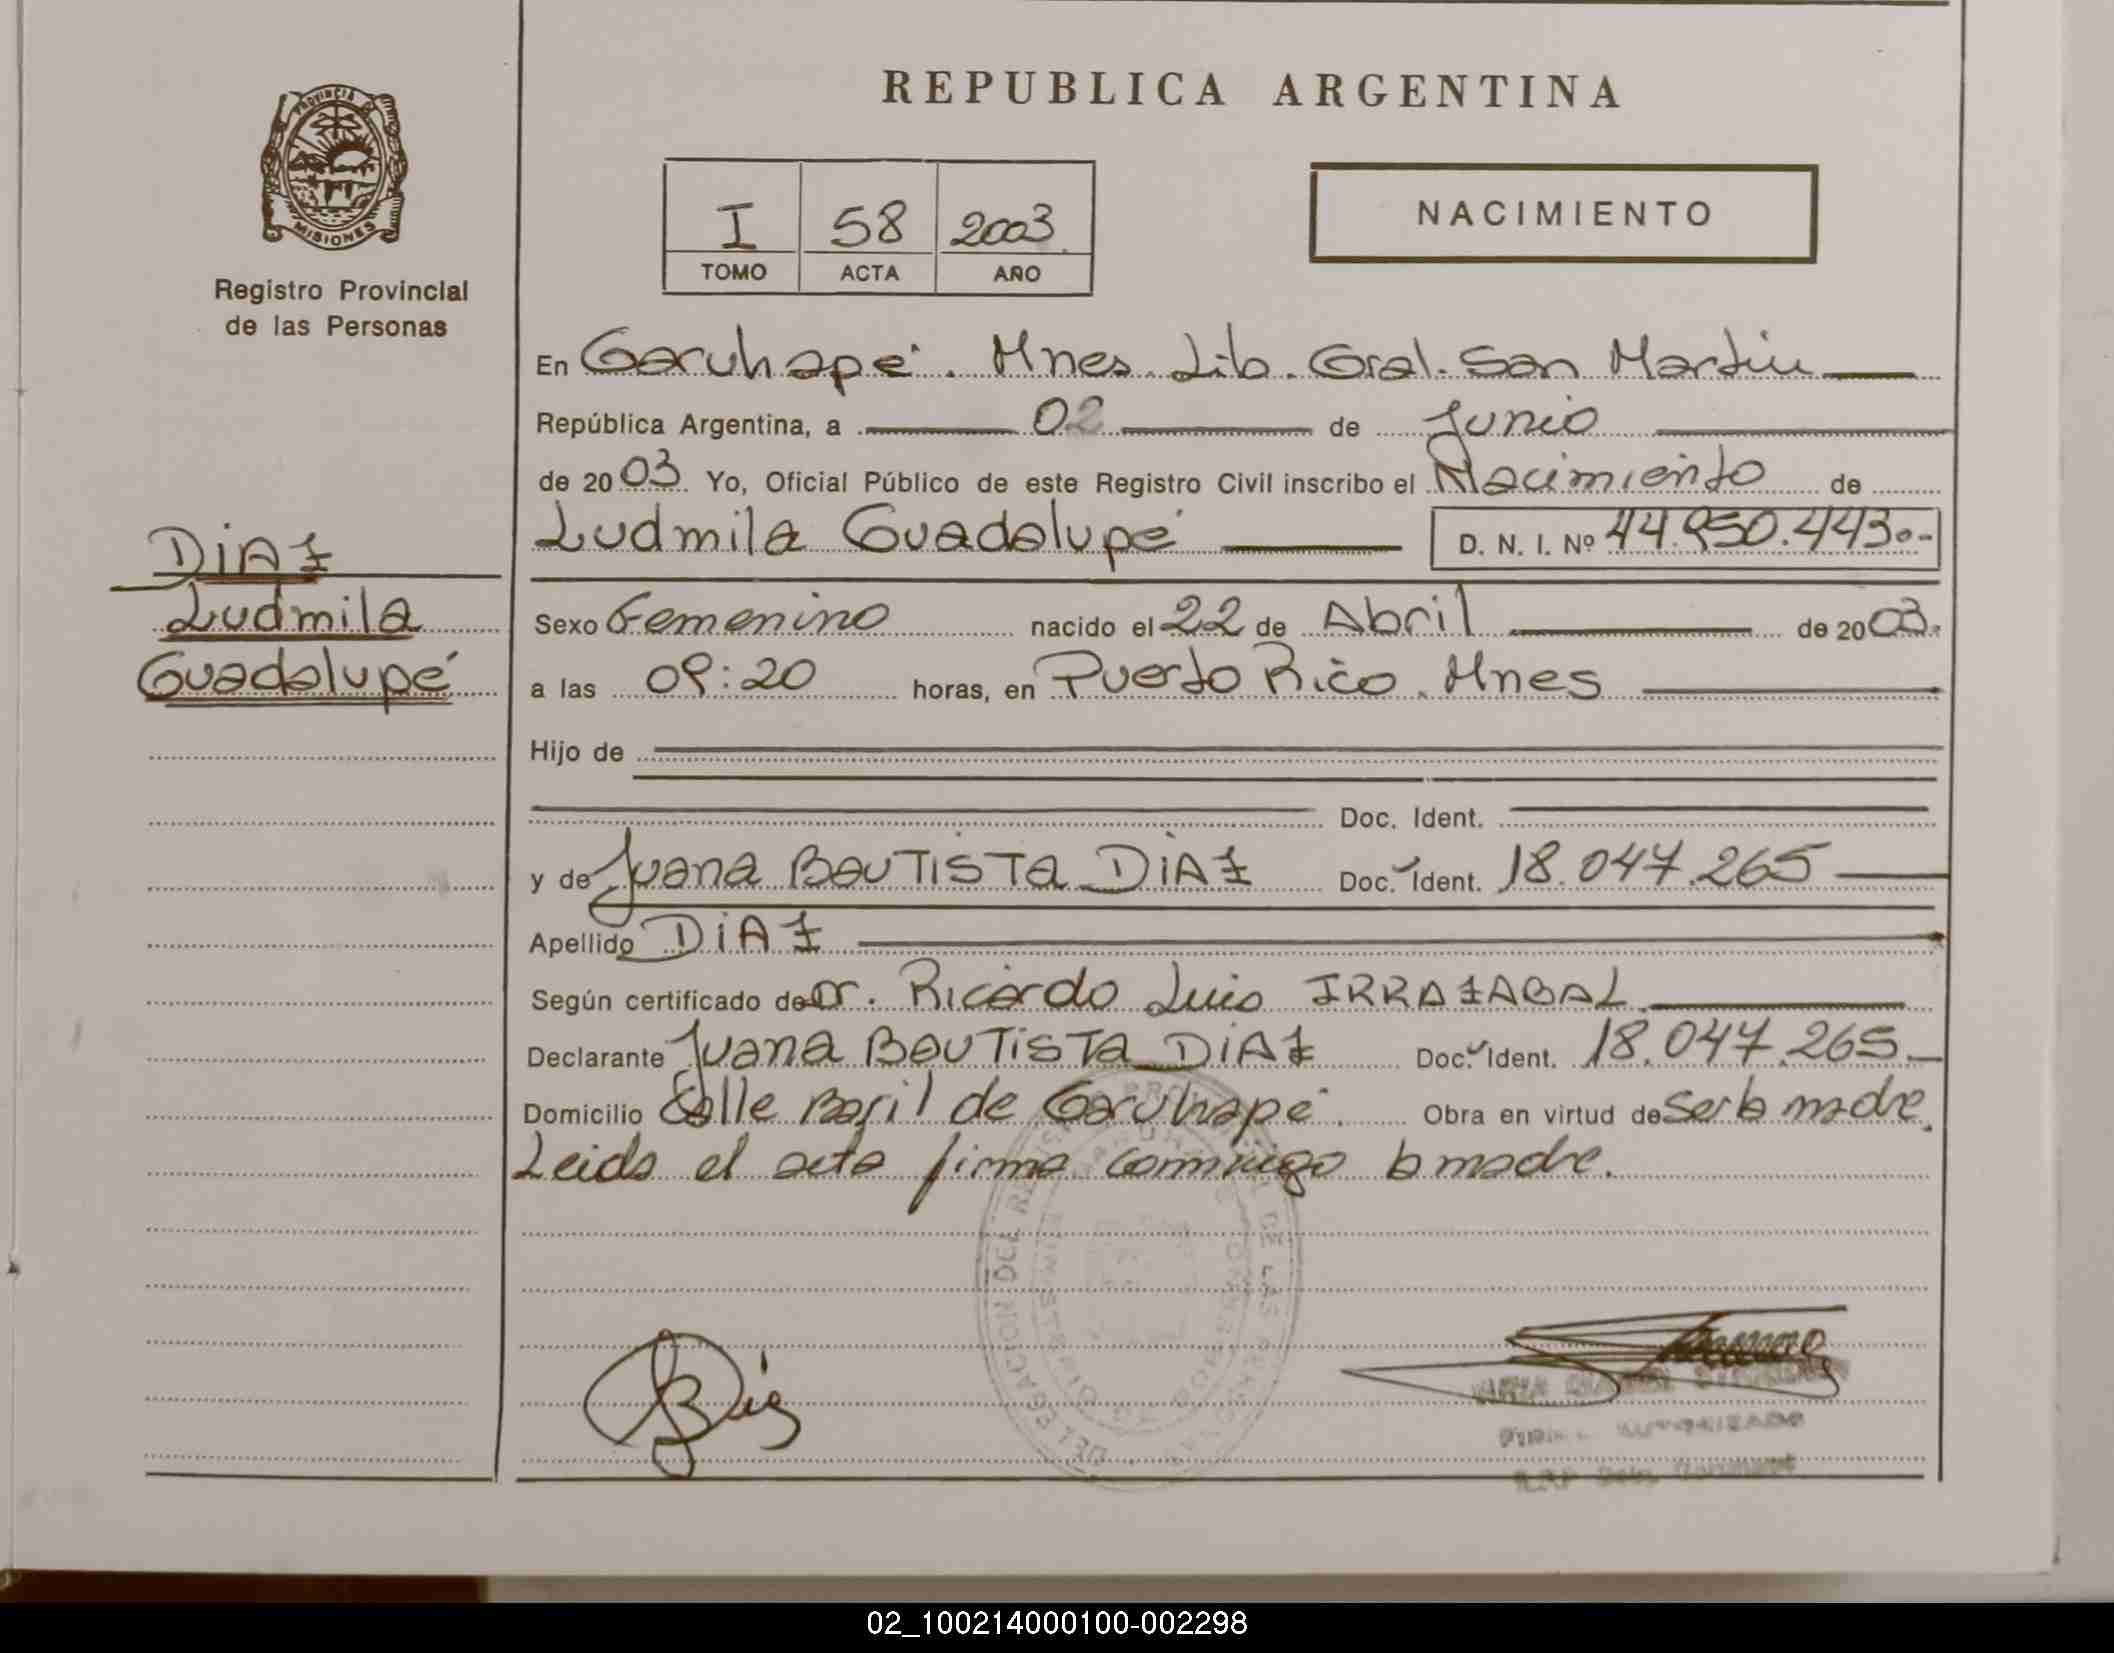 REPUBLICA ARGENTINA
PROVINCIA DE
MISIONES
Registro Provincial
de las Personas
I 58 2003
TOMO ACTA AÑO
NACIMIENTO
En Garuhapé. Mnes. Lib. Gral. San Martín
República Argentina, a 02 de Junio
de 2003. Yo, Oficial Público de este Registro Civil inscribo el Nacimiento de
Ludmila Guadalupé D. N. I. Nº 44.950.443.-
DIAZ
Ludmila
Guadalupé
Sexo Femenino nacido el 22 de Abril de 2003.
a las 09:20 horas, en Puerto Rico. Mnes
Hijo de
Doc. Ident.
y de Juana Bautista DIAZ Doc. Ident. 18.047.265
Apellido DIAZ
Según certificado de Dr. Ricardo Luis IRRAZABAL
Declarante Juana Bautista DIAZ Doc. Ident. 18.047.265.
Domicilio Calle de Garuhapé. Obra en virtud de Ser la madre.
Leida el acta firma conmigo la madre.
DELEGACION DEL REGISTRO PROVINCIAL DE LAS PERSONAS
AUTORIZADO
02_100214000100-002298